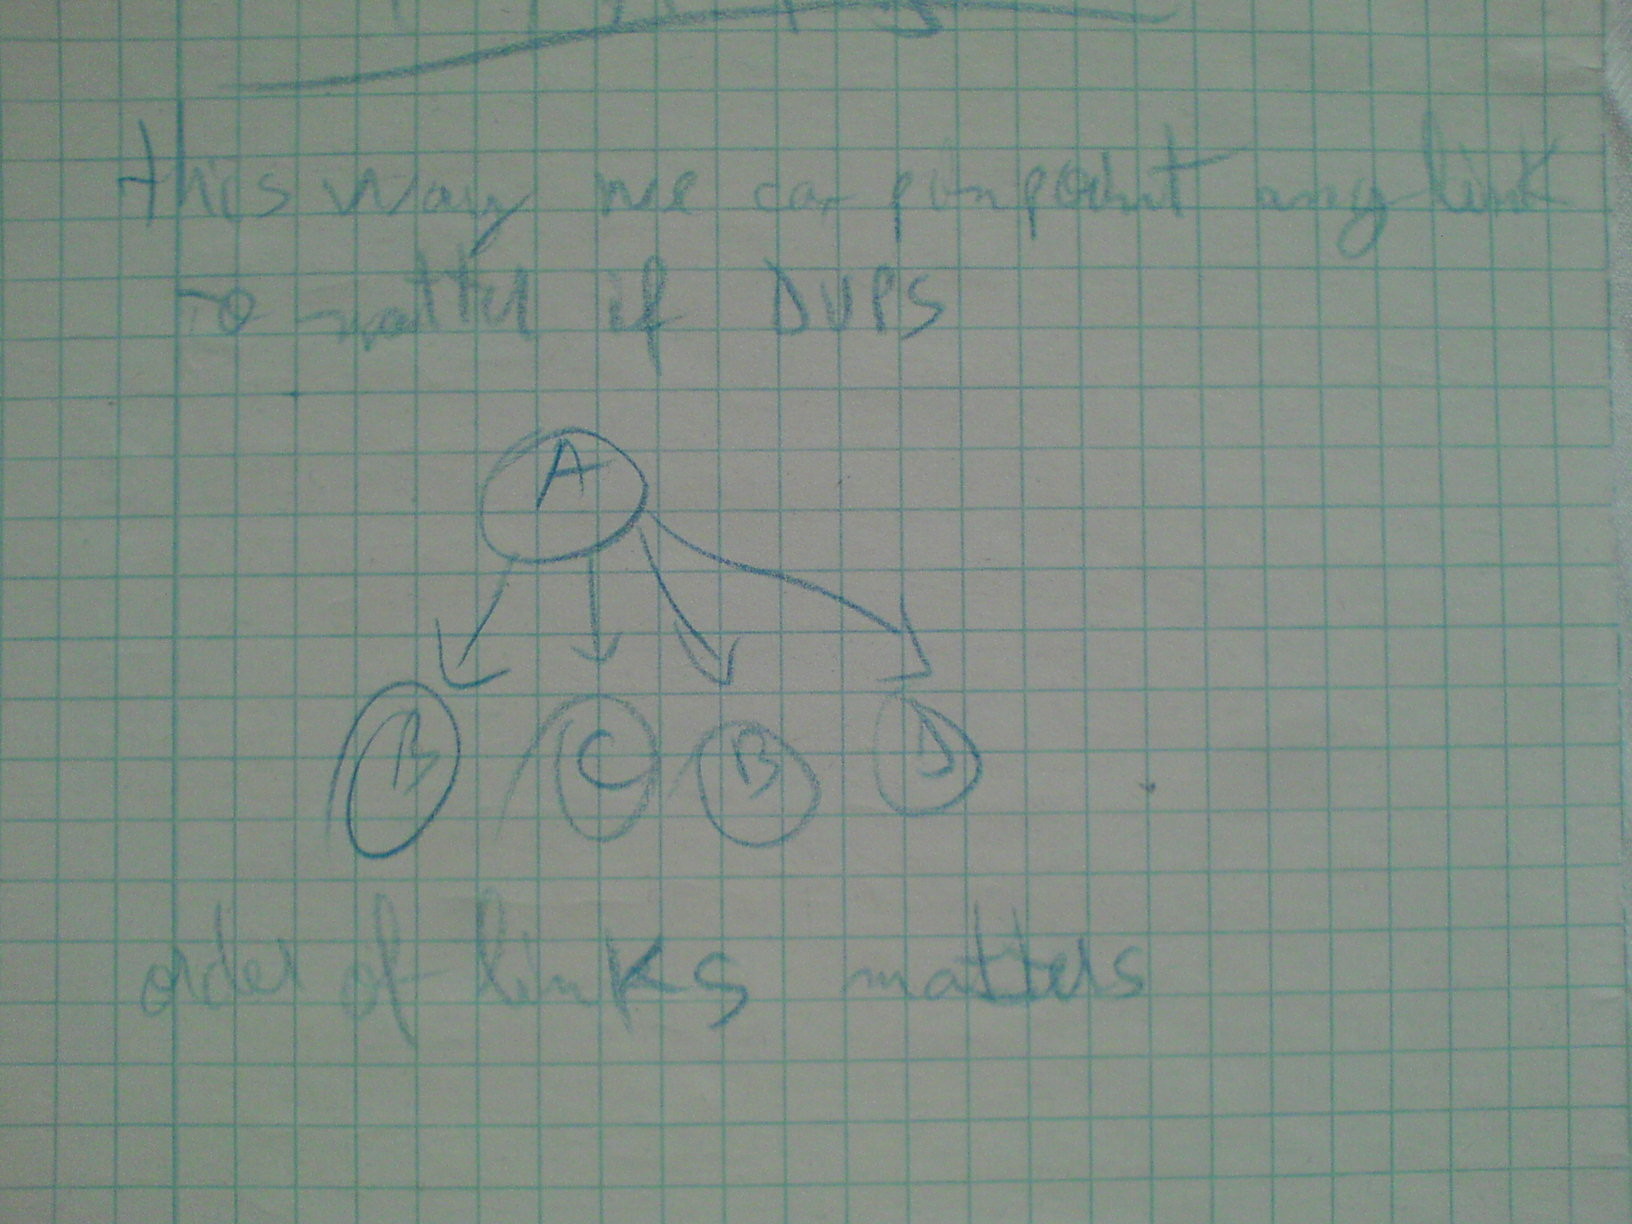 this way we can pinpoint any link
no matter if DUPS
A
B C B D
order of links matters